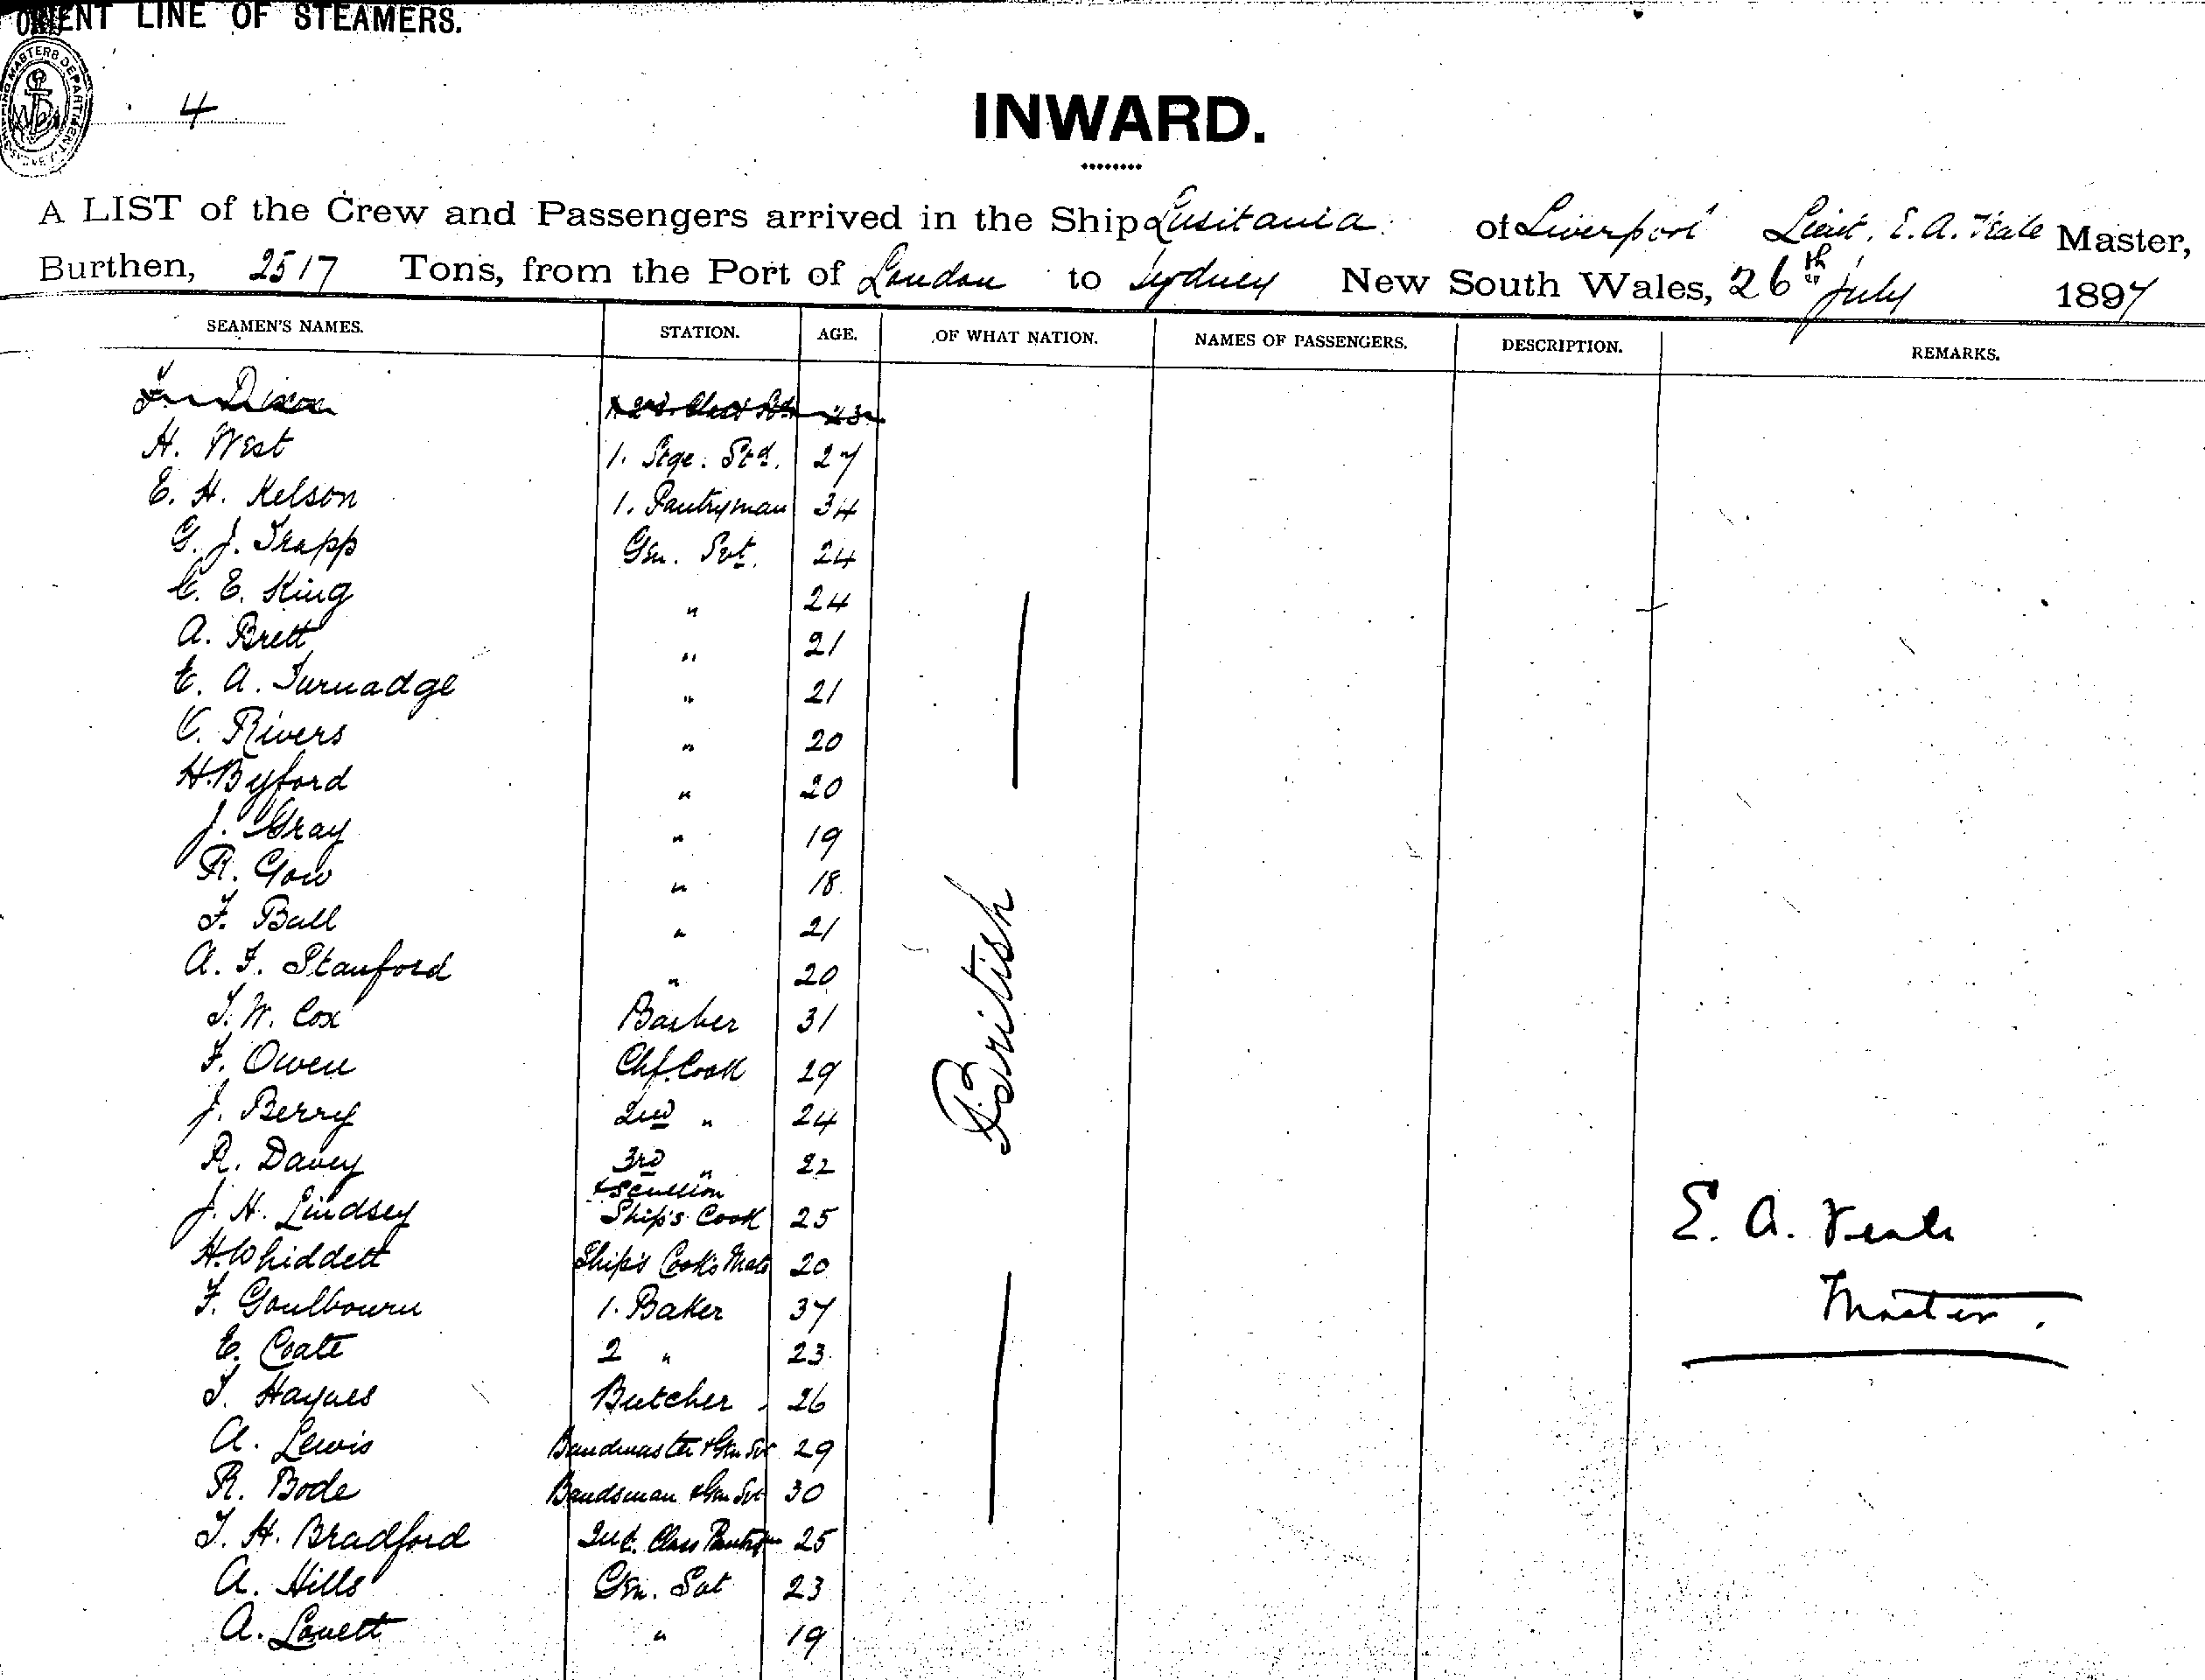 ORIENT LINE OF STEAMERS.
4
INWARD.
A LIST of the Crew and Passengers arrived in the Ship Lusitania of Liverpool Lieut. E. A. Veale Master,
Burthen, 2517 Tons, from the Port of London to Sydney New South Wales, 26th July 1897
SEAMEN'S NAMES. STATION. AGE. OF WHAT NATION. NAMES OF PASSENGERS. DESCRIPTION. REMARKS.
Dixon
H. West 1. Stge. Std. 27
E. H. Kelson 1. Pantryman 34
G. J. Trapp Gen. Svt. 24
C. E. King " 24
A. Brett " 21
E. A. Turnadge " 21
C. Rivers " 20
H. Byford " 20
J. Gray " 19
R. Gow " 18
F. Ball " 21
A. F. Stanford " 20
T. W. Cox Barber 31
F. Owen Chf. Cook 29
J. Berry 2nd " 24
R. Davey 3rd " 22
& Scullion
J. H. Lindsey Ship's Cook 25
H. Whiddett Ship's Cook's Mate 20
F. Goulbourn 1. Baker 37
E. Coate 2 " 23
T. Haynes Butcher 26
A. Lewis Bandmaster & Gen Svt 29
R. Bode Bandsman & Gen Svt 30
T. H. Bradford 2nd. Class Pantry 25
A. Hills Gen. Svt 23
A. Lovett " 19
British
E. A. Veale
Master.